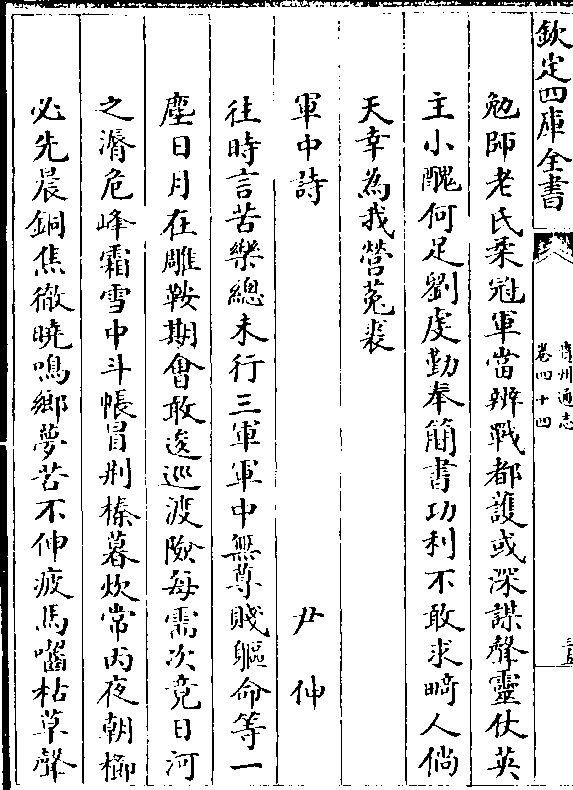 欽定四庫全書
貴州通志
卷四十四
勉師老氏柔冠軍當辨戰都護或深謀聲靈仗英
主小醜何足劉虔勤奉簡書功利不敢求畸人倘
天幸為我營菟裘
軍中詩 尹伸
往時言苦樂總未行三軍軍中無尊賤軀命等一
塵日月在雕鞍期會敢逡巡渡險每需次竟日河
之漘危峰霜雪中斗帳冒荆榛暮炊常丙夜朝櫛
必先晨銅焦徹曉鳴鄉夢苦不伸疲馬嚙枯草聲